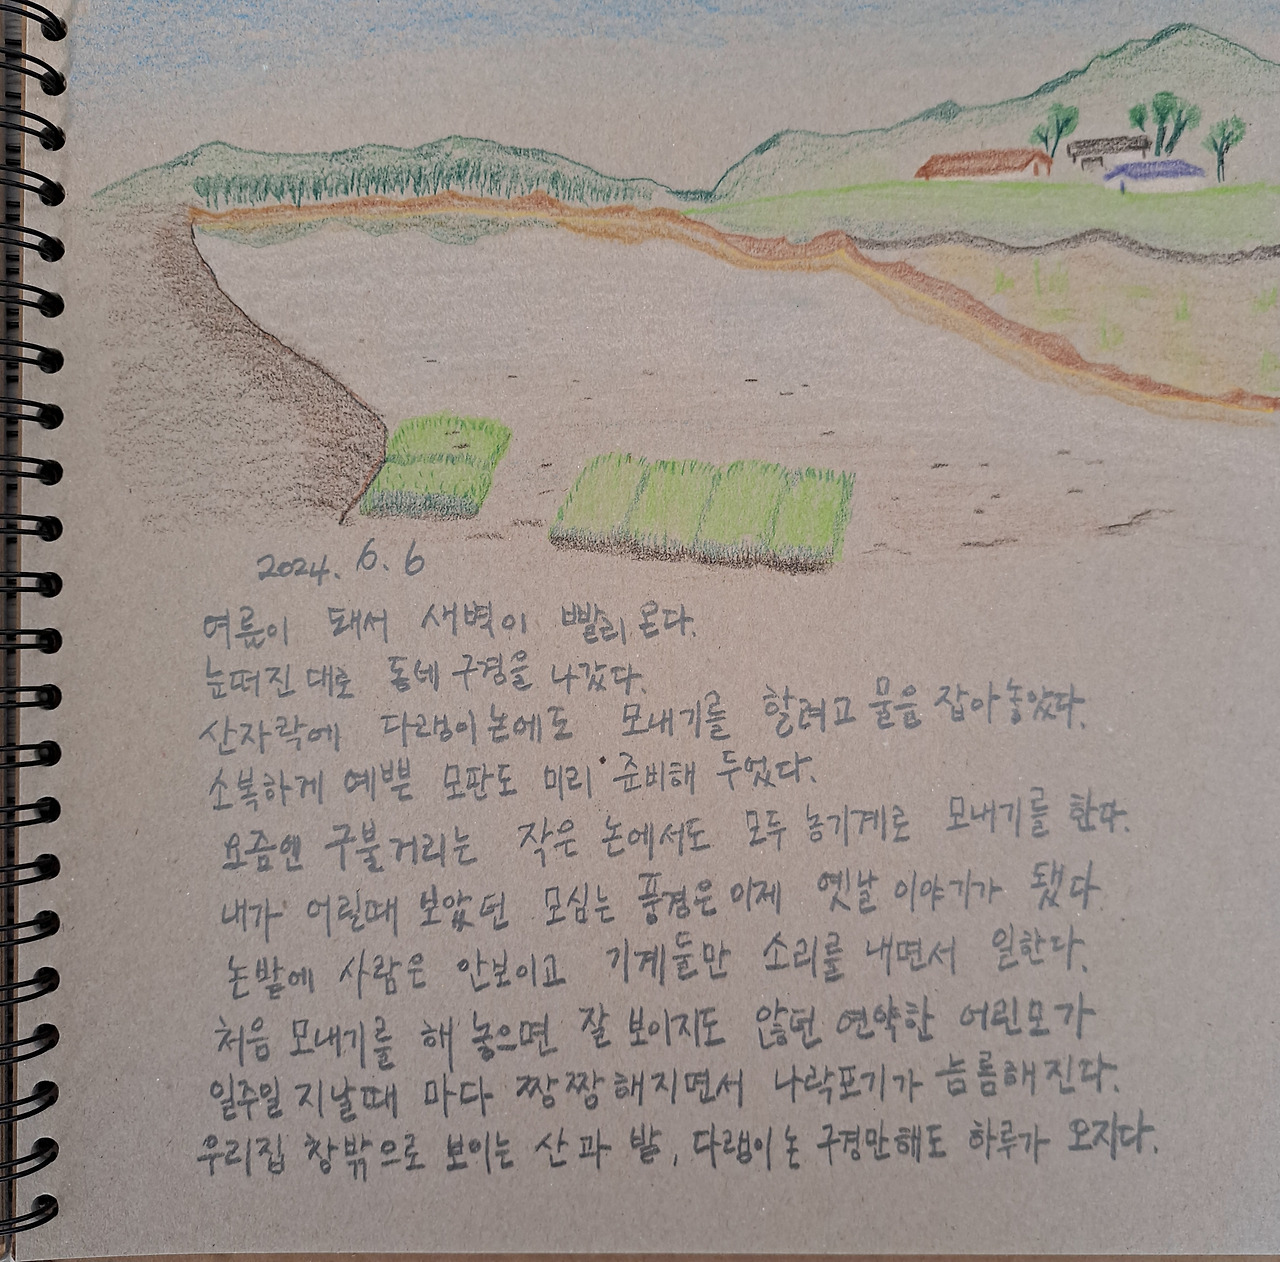 2024. 6. 6
여름이 돼서 새벽이 빨리 온다.
눈떠진 대로 동네 구경을 나갔다.
산자락에 다랭이논에도 모내기를 할려고 물을 잡아놓았다.
소복하게 예쁜 모판도 미리 준비해 두었다.
요즘엔 구불거리는 작은 논에서도 모두 농기계로 모내기를 한다.
내가 어릴때 보았던 모심는 풍경은 이제 옛날 이야기가 됐다.
논밭에 사람은 안보이고 기계들만 소리를 내면서 일한다.
처음 모내기를 해 놓으면 잘 보이지도 않던 연약한 어린모가
일주일 지날때 마다 짱짱해지면서 나락포기가 늠름해진다.
우리집 창밖으로 보이는 산과 밭, 다랭이논 구경만해도 하루가 오지다.